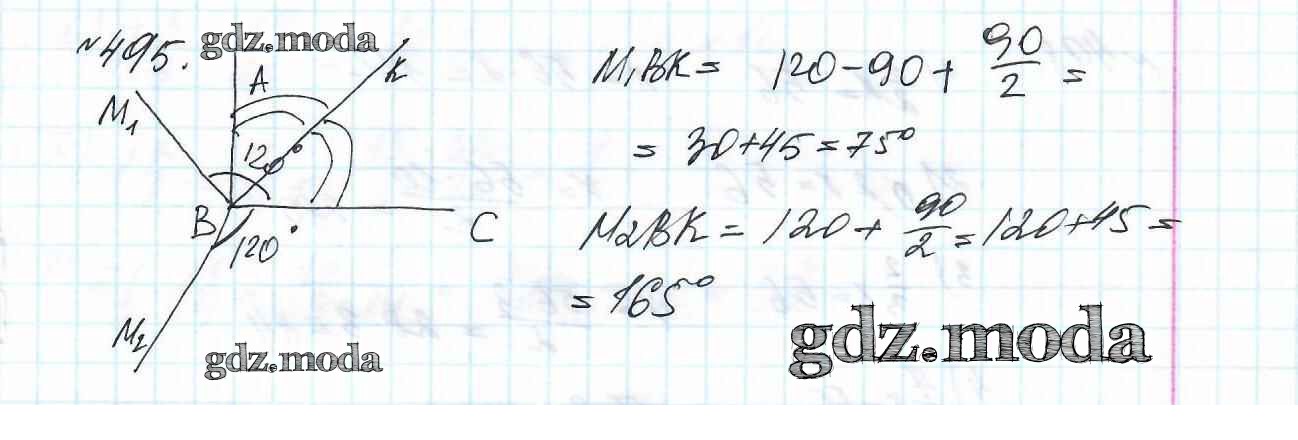 №495. gdz.moda
A
K
M₁
120°
B
C
120°
M₂
gdz.moda
M₁BK = 120-90+ 90/2 =
= 30+45=75°
M₂BK = 120+ 90/2 = 120+45 =
= 165°
gdz.moda